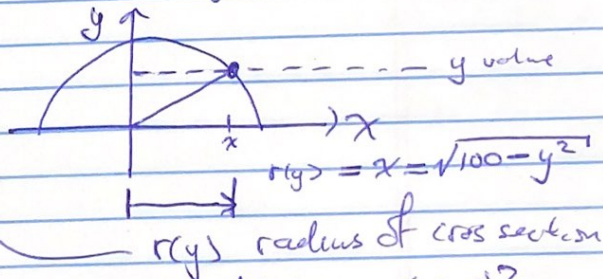 y
y value
x
x
r(y) = x = √(100 - y²)
r(y) radius of cros section